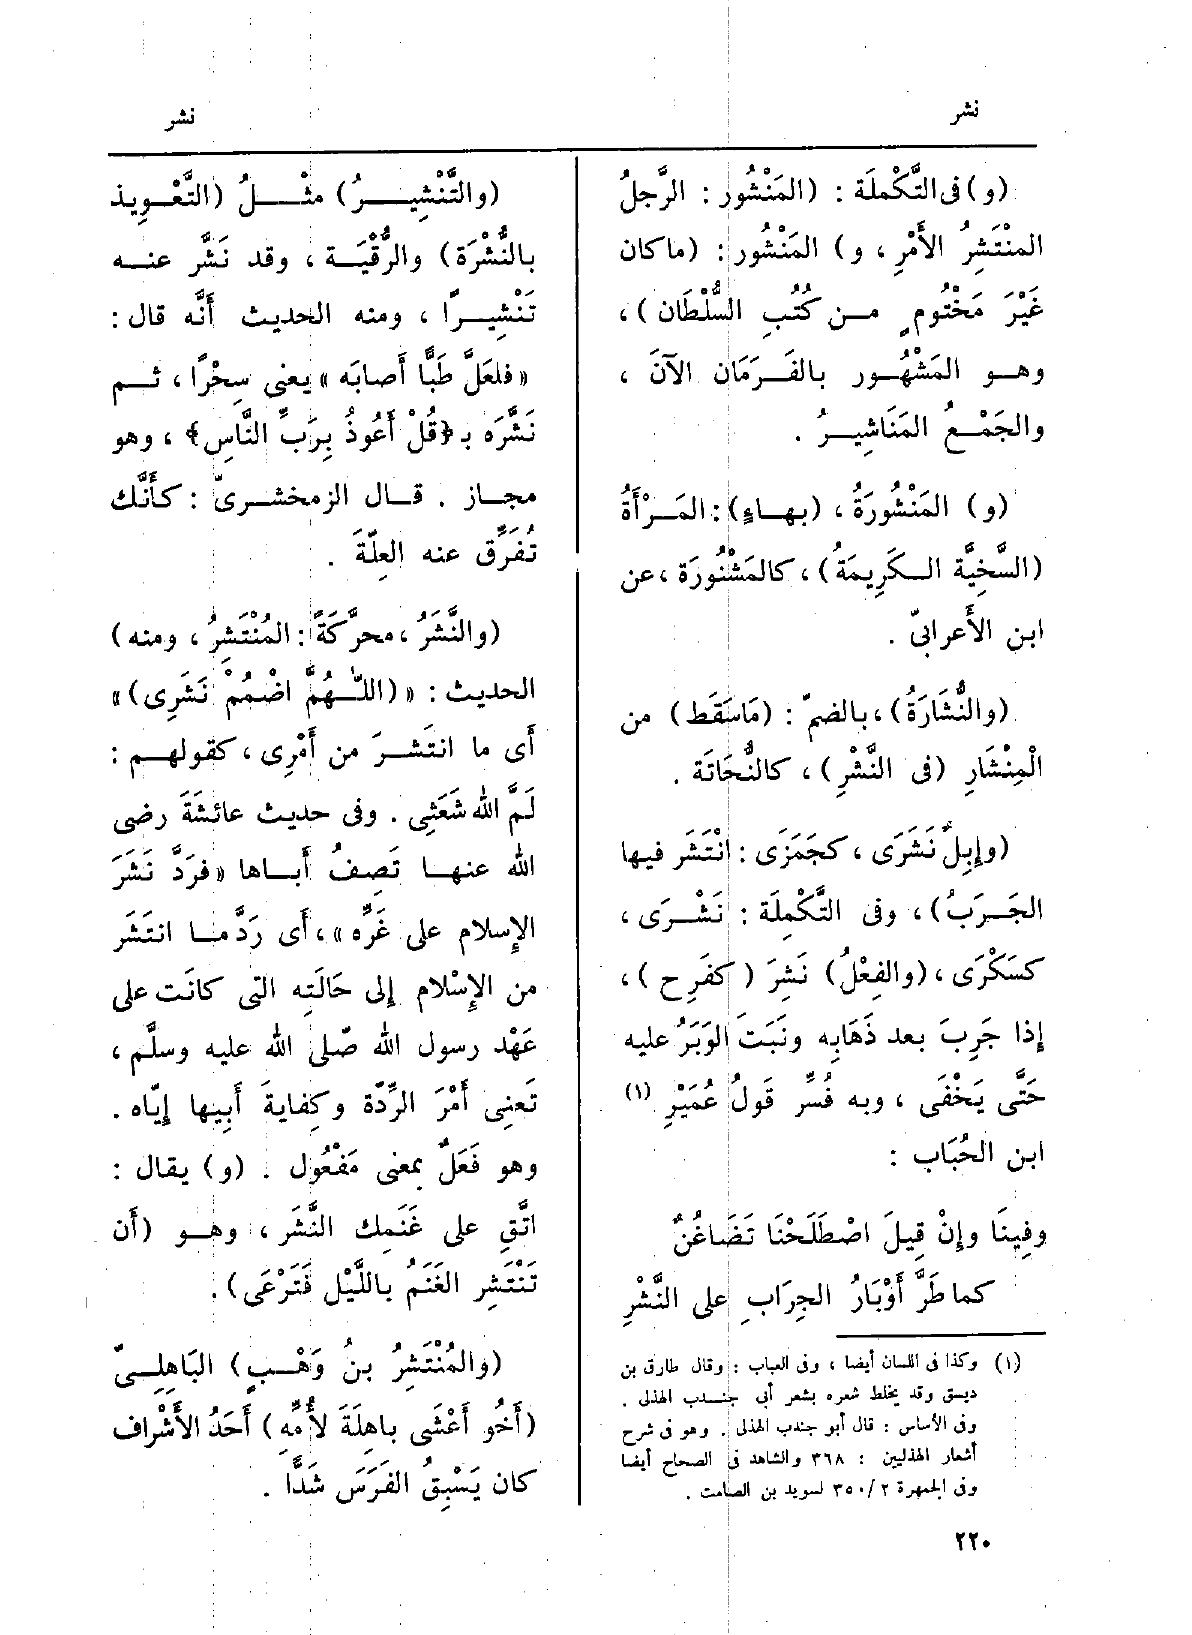 نشر
نشر
(و) فى التَّكْملَة : (المَنْشُور : الرَّجلُ
المنْتَشِرُ الأَمْرِ ، و) المَنْشُور : (ما كان
غَيْرَ مَخْتُومٍ مـن كُتُبِ السُّلْطَان) ،
وهـو المَشْهُور بالفَـرَمَان الآنَ ،
والجَمْـع المَنَاشِيـرُ .
(و) المَنْشُورَةُ ، (بهـاءٍ) : المَـرْأَةُ
(السَّخِيَّة الـكَرِيمَةُ) ، كالمَشْنُورَة ، عن
ابن الأَعرابىّ .
(والنُّشَارَةُ) ، بالضمّ : (مَاسَقَط) من
الْمِنْشَارِ (فى النَّشْرِ) ، كالنُّحَاتَة .
(وإِبِلٌ نَشَرَى ، كجَمَزَى : انْتَشَر فيها
الجَـرَبُ) ، وفى التَّكْمِلَة : نَشْـرَى ،
كسَكْرَى ، (والفِعْلُ) نَشِرَ (كفَرِح) ،
إِذا جَرِبَ بعد ذَهَابِه ونَبَتَ الوَبَرُ عليه
حَتَّى يَخْفَى ، وبه فُسِّر قَولُ عُمَيْرِ (١)
ابن الحُبَاب :
وفِينَا وإِنْ قِيلَ اصْطَلَحْنَا تَضَاغُنٌ
كما طَرَّ أَوْبَارُ الجِرَابِ على النَّشْرِ
(١) وكذا فى اللسان أيضا ، وفى العباب : وقال طارق بن
ديسق وقد يخلط شعره بشعر أبى جنـدب الهذلى .
وفى الأساس : قال أبو جندب الهذلى . وهو فى شرح
أشعار الهذليين : ٣٦٨ والشاهد فى الصحاح أيضا
وفى الجمهرة ٢ / ٣٥٠ لسويد بن الصامت .
(والتَّنْشِيـرُ) مثـلُ (التَّعْـوِيذ
بالنُّشْرَة) والرُّقْيَـة ، وقد نَشَّر عنـه
تَنْشِيـرًا ، ومنه الحديث أَنَّه قال :
«فلعَلَّ طَبًّا أَصابَه» يعنى سِحْرًا ، ثـم
نَشَّرَه بـ{قُلْ أَعُوذُ بِرَبِّ النَّاسِ} ، وهو
مجـاز . قـال الزمخشـرىّ : كأَنَّك
تُفَرِّق عنه العِلَّةَ .
(والنَّشَرُ ، محرَّكَةً : المُنْتَشِرُ ، ومنه)
الحديث : «(اللّٰـهُمَّ اضْمُمْ نَشَرِى)»
أَى ما انتَشـرَ من أَمْرِى ، كقولهـم :
لَمَّ اللهُ شَعَثِى . وفى حديث عائشةَ رضى
الله عنهـا تَصِفُ أَبـاها «فرَدَّ نَشَرَ
الإِسلام على غَرِّه» ، أَى رَدَّ مـا انتَشَر
من الإِسْلام إِلى حَالَتِه التى كانَت على
عَهْد رسول الله صّلى الله عليه وسلَّم ،
تَعنِى أَمْرَ الرِّدّة وكِفايةَ أَبِيها إِيّاه .
وهو فَعَلٌ بمعنى مَفْعُول . (و) يقال :
اتَّقِ على غَنَمك النَّشَر ، وهـو (أَن
تَنْتَشِر الغَنَمُ باللَّيْل فَتَرْعَى) .
(والمُنْتَشِرُ بنُ وَهْـبٍ) البَاهِلِـىّ
(أَخُو أَعْشَى باهِلَةَ لأُمِّهِ) أَحَدُ الأَشْراف
كان يَسْبِقُ الفَرَسَ شَدًّا .
٢٢٠